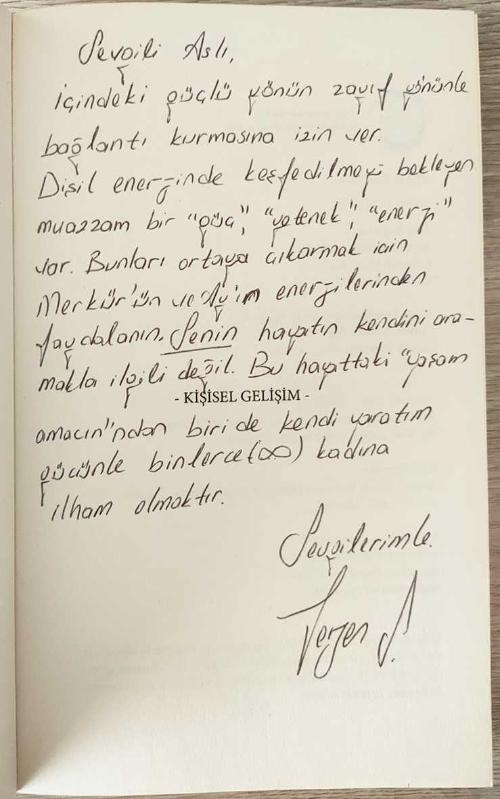 Sevgili Aslı,
içindeki güçlü yönün zayıf yönünle
bağlantı kurmasına izin ver.
Dişil enerjinde keşfedilmeyi bekleyen
muazzam bir "güç", "yetenek", "enerji"
var. Bunları ortaya çıkarmak için
Merkür'ün ve Ay'ın enerjilerinden
faydalanın. Senin hayatın kendini ara-
makla ilgili değil. Bu hayattaki "yaşam
- KİŞİSEL GELİŞİM -
amacın"ndan biri de kendi yaratım
gücünle binlerce (∞) kadına
ilham olmaktır.
Sevgilerimle.